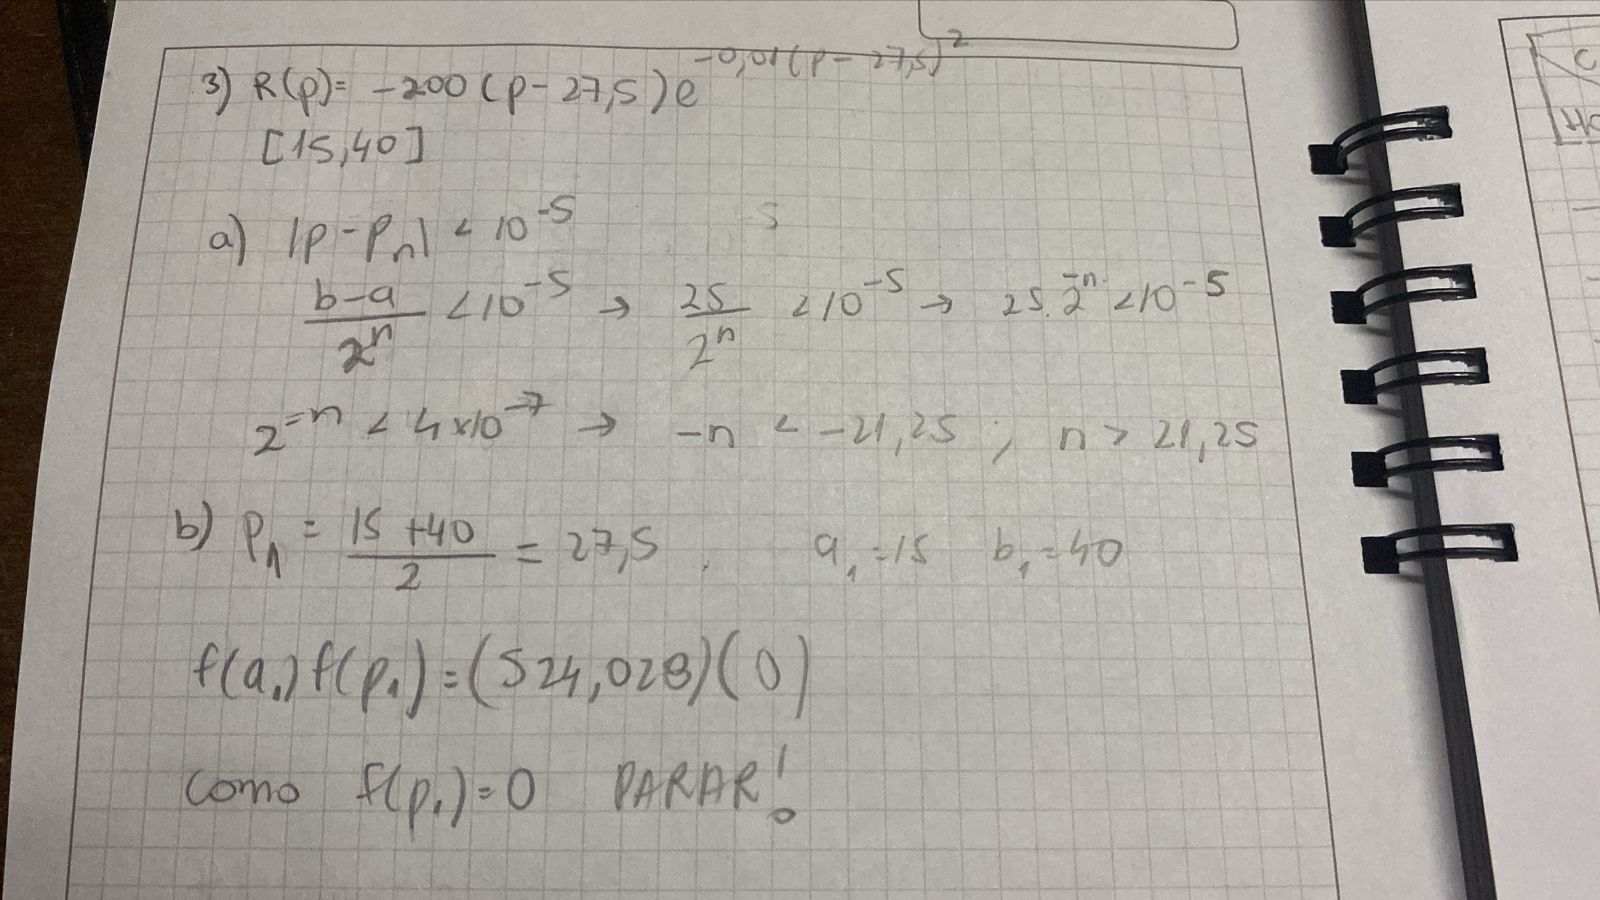 3) R(p)= -200 (p-27,5) e^-0,01(p-27,5)^2
[15,40]
a) |p-pn| < 10^-5
(b-a)/2^n < 10^-5 → 25/2^n < 10^-5 → 25.2^-n < 10^-5
2^-n < 4x10^-7 → -n < -21,25 ; n > 21,25
b) p1 = (15+40)/2 = 27,5 . a1=15 b1=40
f(a1) f(p1) = (524,028)(0)
como f(p1)=0 PARAR!